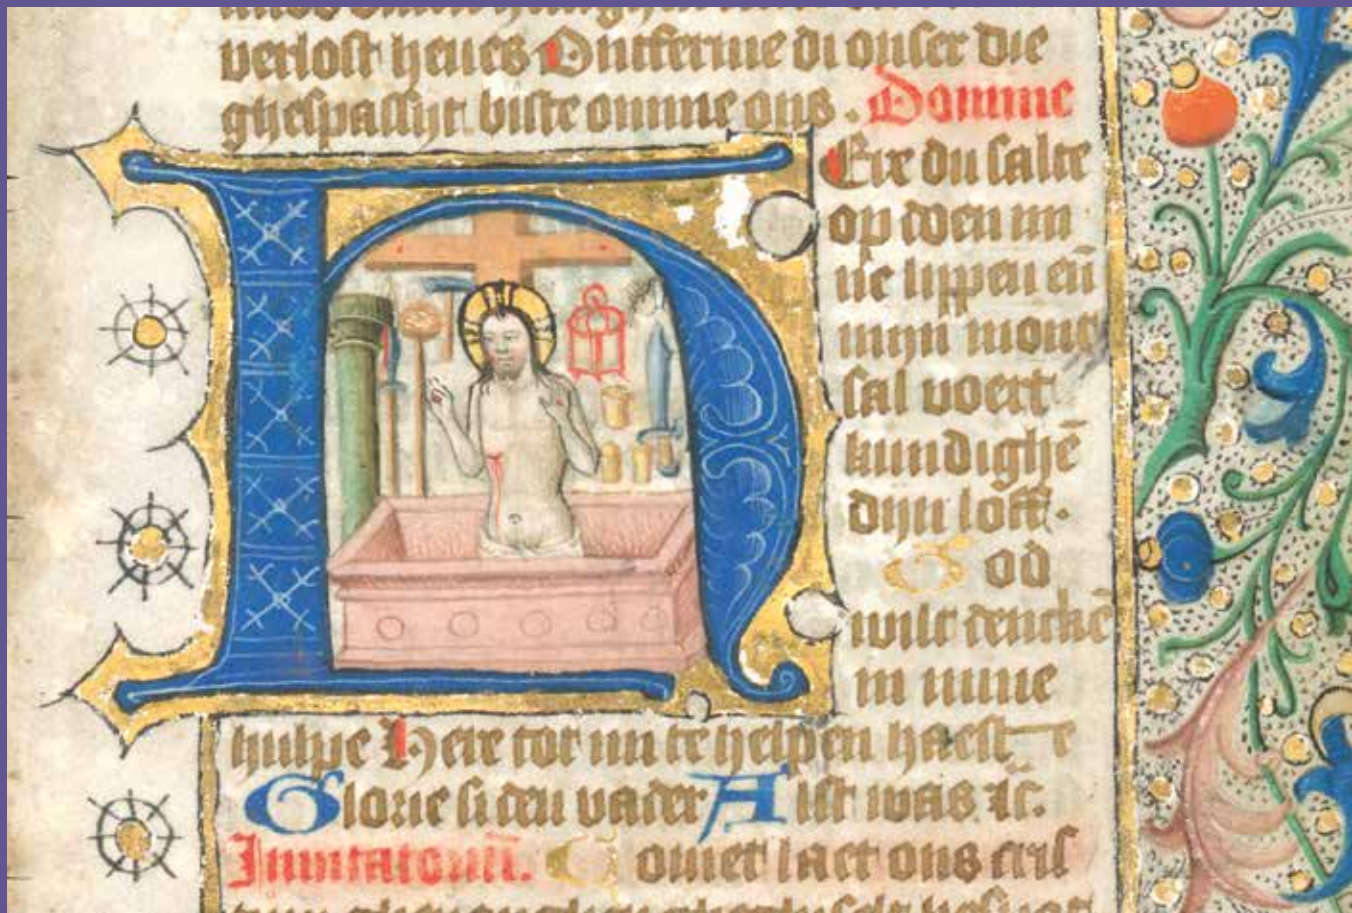 verlost heues Ontferme di onser die
ghespassijt biste omme ons . Domine
H Ere du salte
op doen mi
ne lippen eñ
mijn mont
sal voert
kundighē
dijn loff.
God
wilt dencken
in mine
hulpe Here tot mi te helpen haest e
Glorie si den vader Als ist was &c.
Comet laet ons